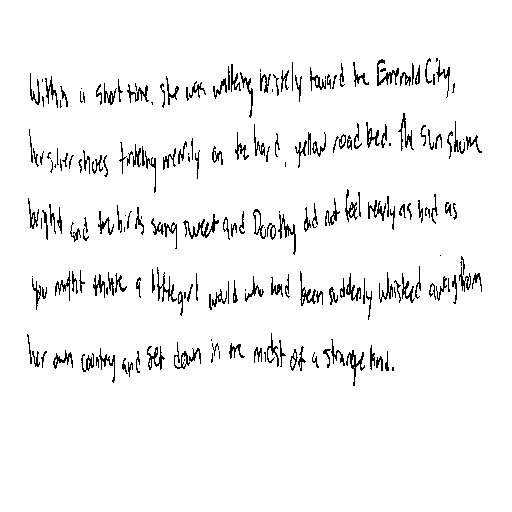 Within a short time, she was walking briskly toward the Emerald City,
her silver shoes tinkling merrily on the hard, yellow road bed. The sun shone
bright and the birds sang sweet and Dorothy did not feel nearly as bad as
you might think a little girl would who had been suddenly whisked away from
her own country and set down in the midst of a strange land.